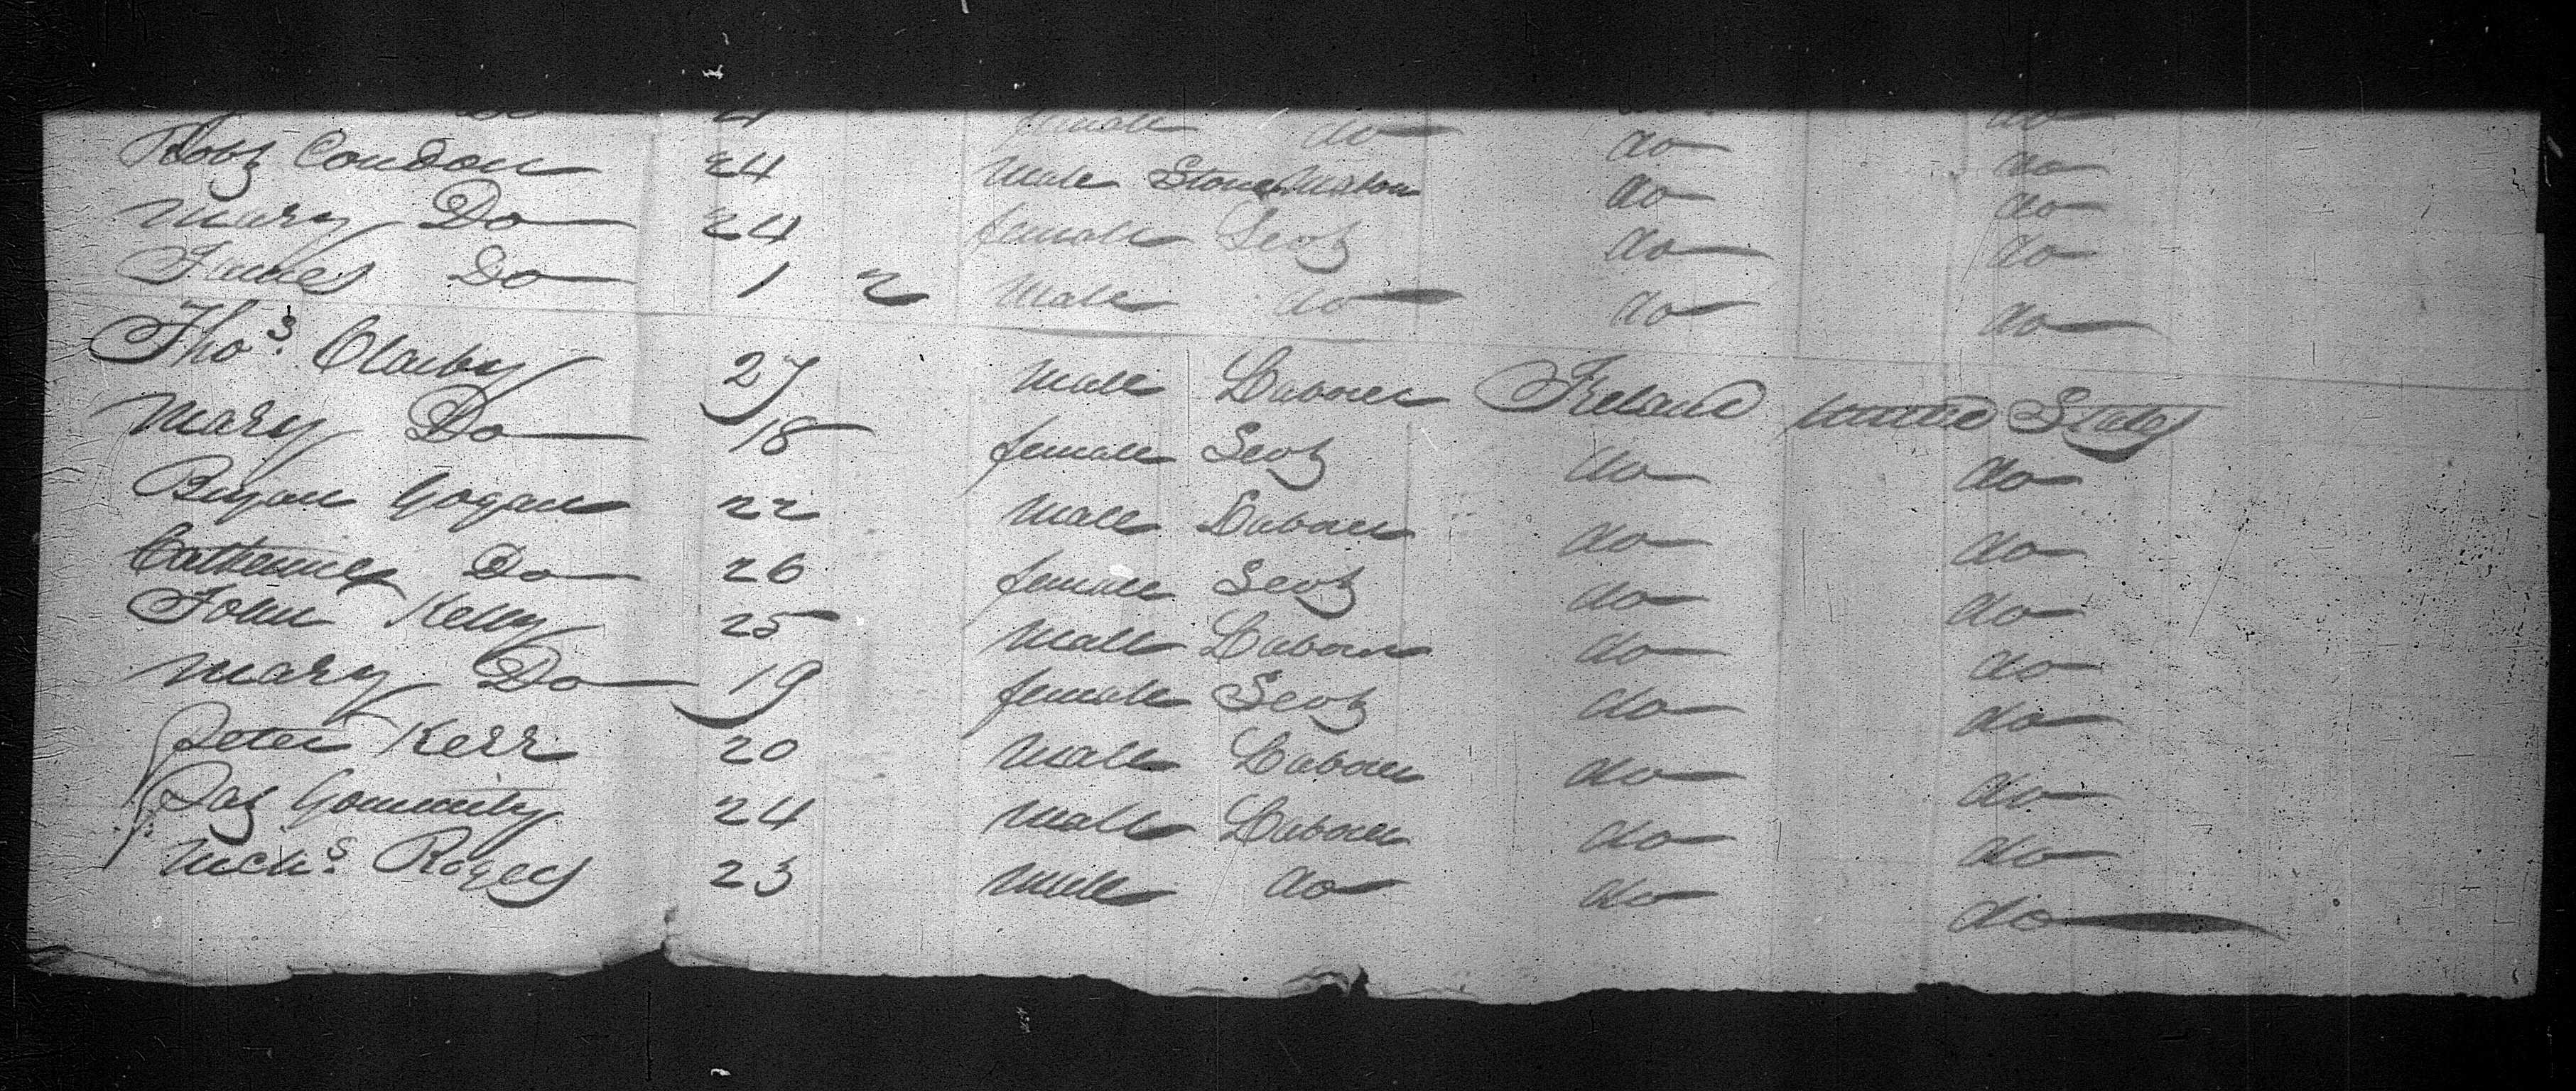 Do 4 female do do do
Robt Condon 24 Male Stone Mason do do
Mary Do 24 female Servt do do
James Do 1 2 Male do do do
Thos. Clarby 27 Male Labourer Ireland United States
Mary Do 18 female Servt do do
Bryan Gogan 22 Male Labourer do do
Catherine Do 26 female Servt do do
John Kelly 25 Male Labourer do do
Mary Do 19 female Servt do do
Peter Kerr 20 Male Labourer do do
Pat Gommily 24 Male Labourer do do
Nichs. Rogers 23 Male do do do